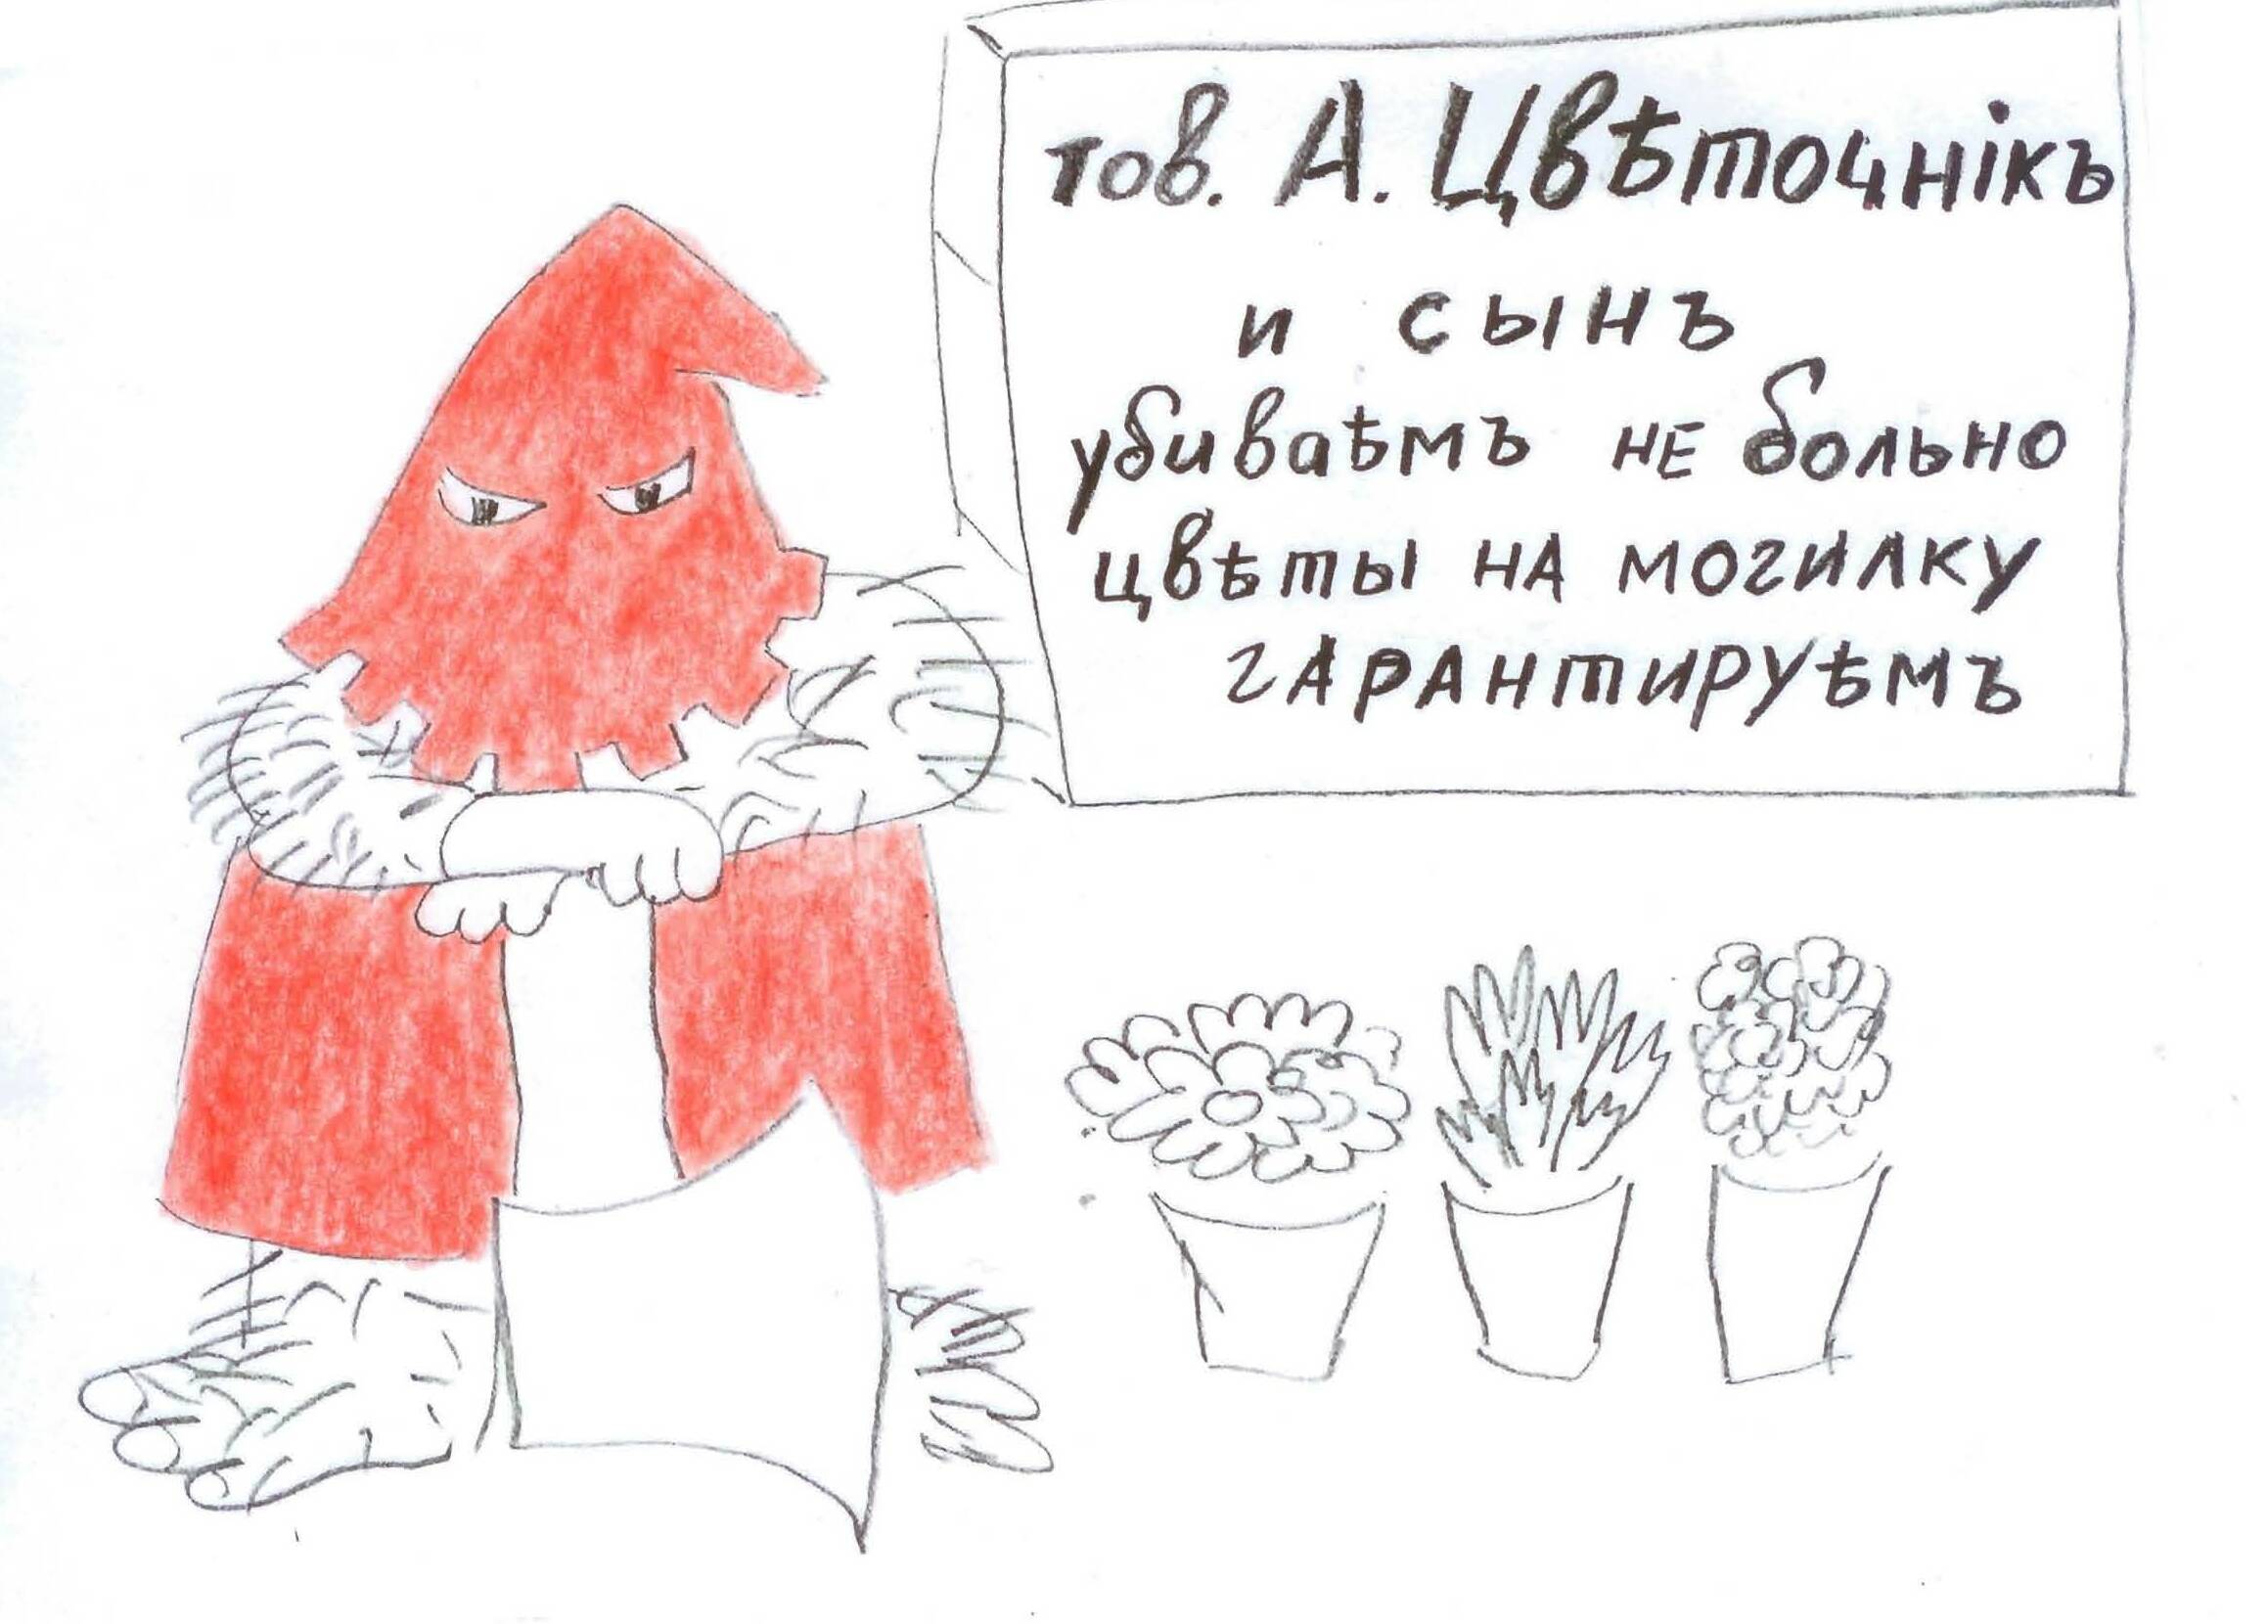 тов. А. Цвѣточнікъ
и сынъ
убиваѣмъ не больно
цвѣты на могилку
гарантируѣмъ